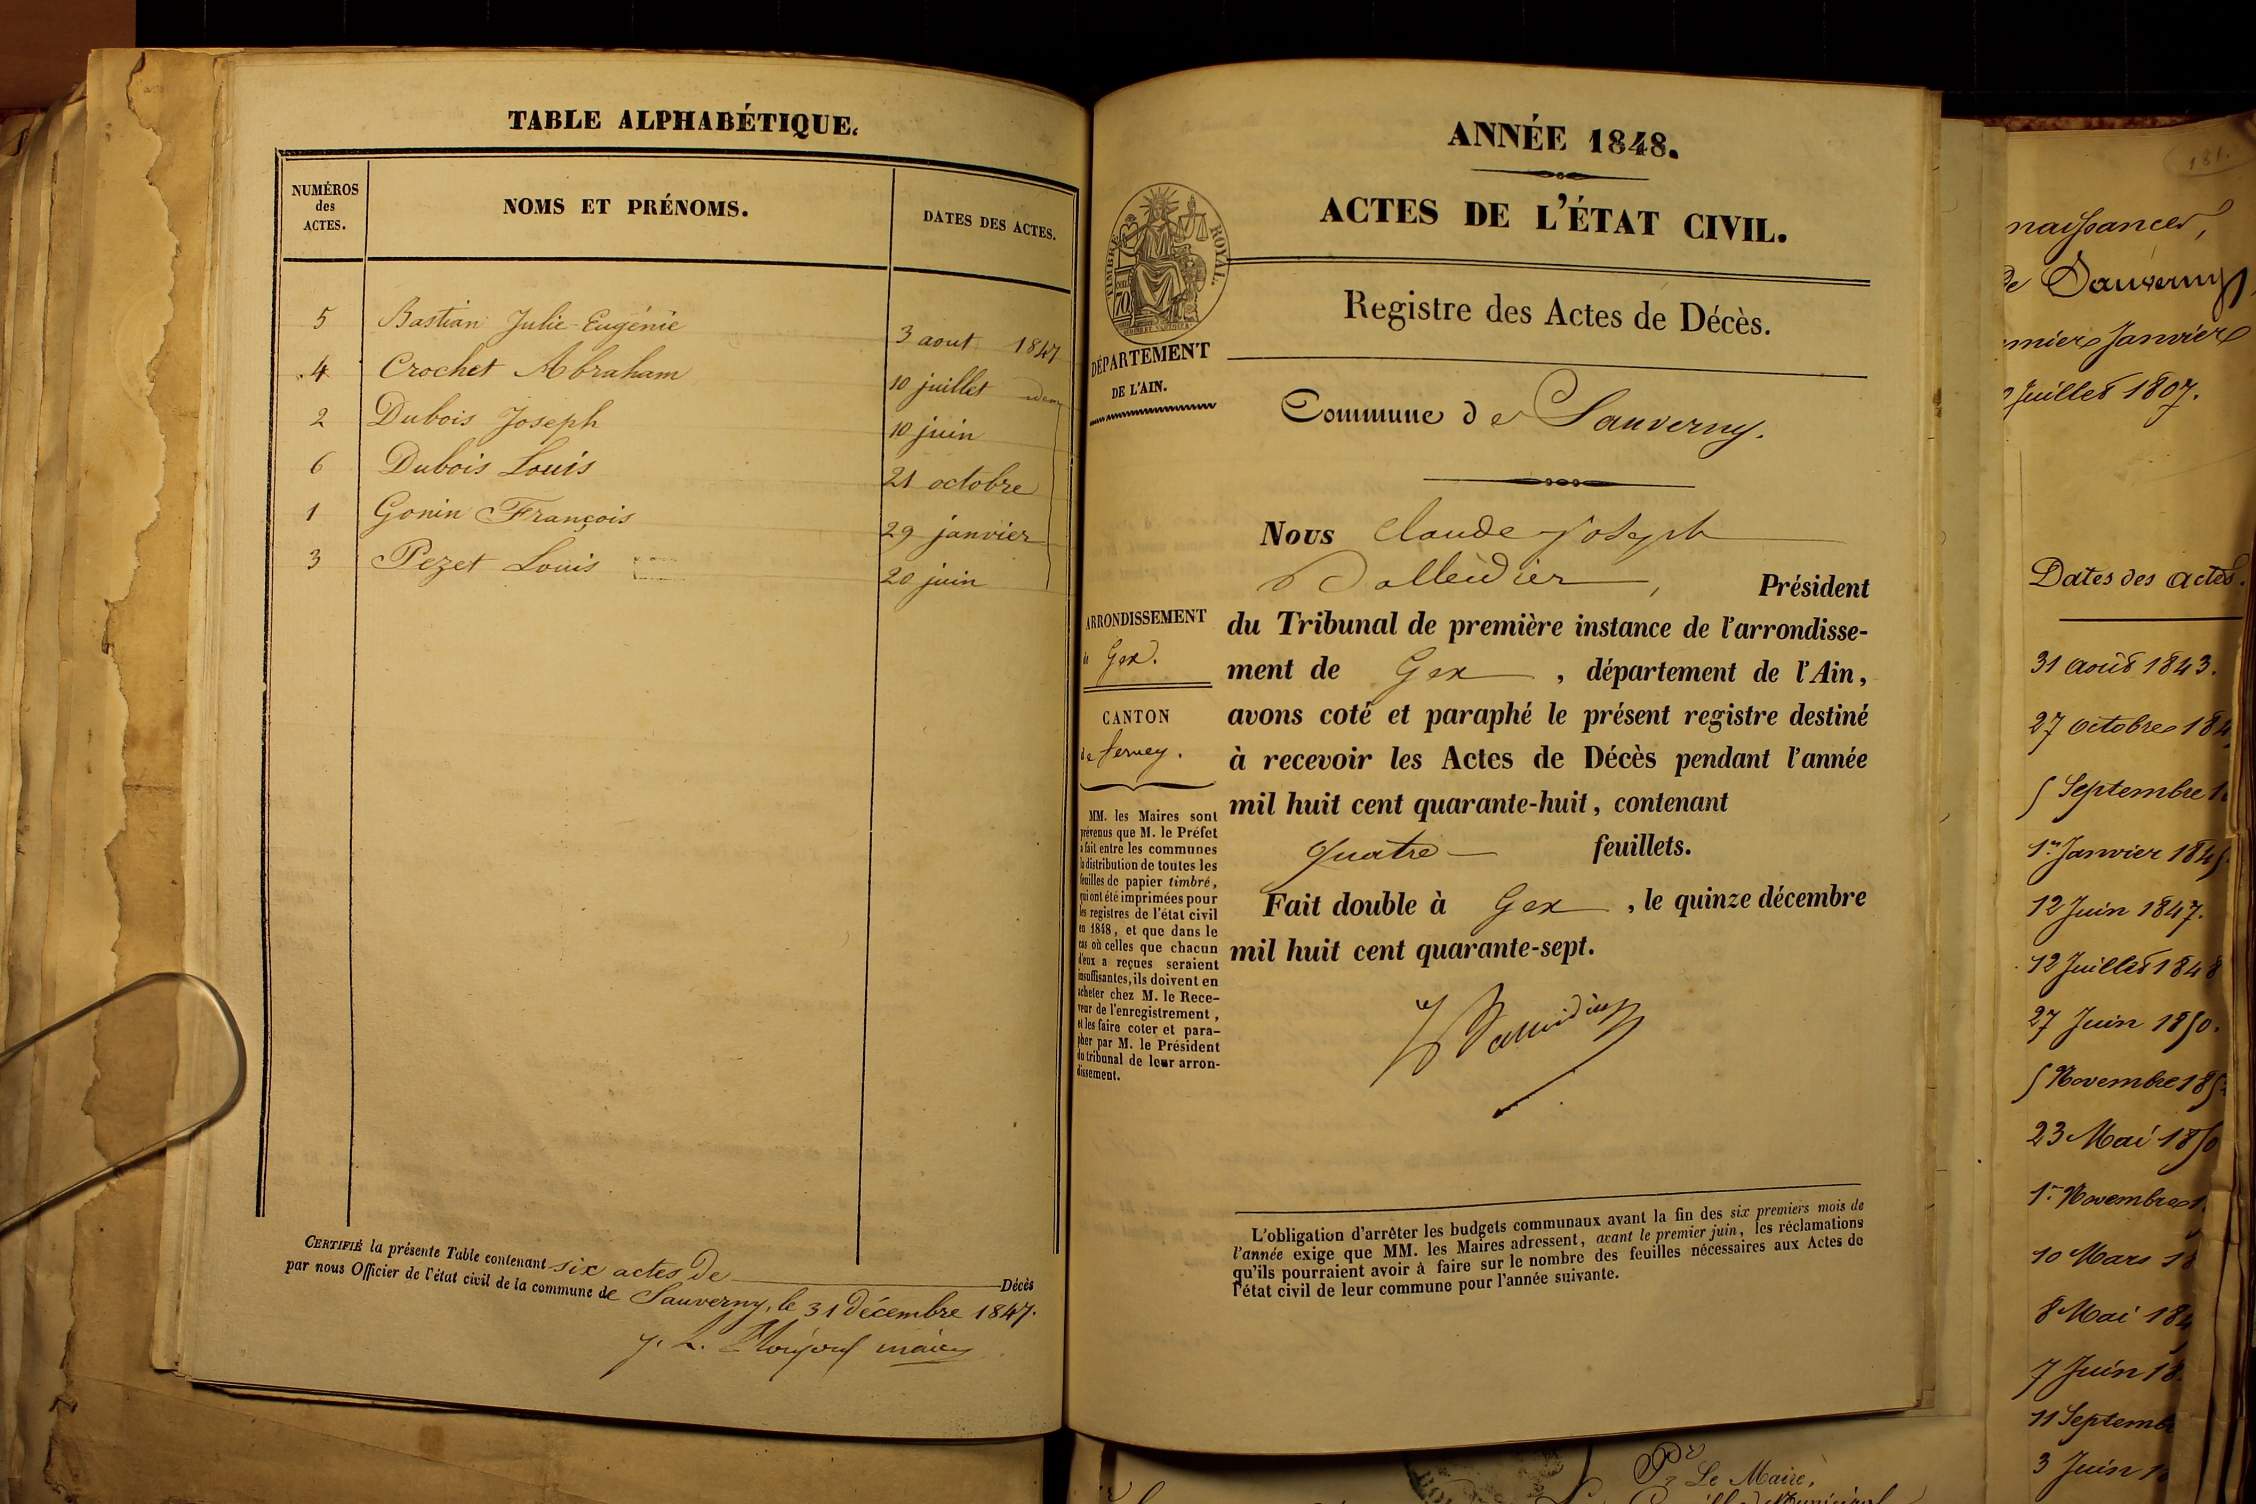 TABLE ALPHABÉTIQUE.
NUMÉROS
des
ACTES.
NOMS ET PRÉNOMS.
DATES DES ACTES.
5 Bastian Julie-Eugénie 3 aout 1847
4 Crochet Abraham 10 juillet idem
2 Dubois Joseph 10 juin
6 Dubois Louis 21 octobre
1 Gonin François 29 janvier
3 Pezet Louis 20 juin
CERTIFIÉ la présente Table contenant six actes de Décès
par nous Officier de l'état civil de la commune de Sauverny, le 31 Décembre 1847.
maire
ANNÉE 1848.
ACTES DE L'ÉTAT CIVIL.
TIMBRE ROYAL.
70
DÉPARTEMENT
DE L'AIN.
Registre des Actes de Décès.
Commune de Sauverny.
ARRONDISSEMENT
de Gex.
CANTON
de Ferney.
MM. les Maires sont
prévenus que M. le Préfet
a fait entre les communes
la distribution de toutes les
feuilles de papier timbré,
qui ont été imprimées pour
les registres de l'état civil
en 1848, et que dans le
cas où celles que chacun
d'eux a reçues seraient
insuffisantes, ils doivent en
acheter chez M. le Rece-
veur de l'enregistrement,
et les faire coter et para-
pher par M. le Président
du tribunal de leur arron-
dissement.
Nous Claude Joseph
Balleidier, Président
du Tribunal de première instance de l'arrondisse-
ment de Gex, département de l'Ain,
avons coté et paraphé le présent registre destiné
à recevoir les Actes de Décès pendant l'année
mil huit cent quarante-huit, contenant
quatre feuillets.
Fait double à Gex, le quinze décembre
mil huit cent quarante-sept.
L'obligation d'arrêter les budgets communaux avant la fin des six premiers mois de
l'année exige que MM. les Maires adressent, avant le premier juin, les réclamations
qu'ils pourraient avoir à faire sur le nombre des feuilles nécessaires aux Actes de
l'état civil de leur commune pour l'année suivante.
181.
naissances,
de Sauverny
Janvier
Juillet 1807.
Dates des actes.
31 août 1843.
27 octobre 184
5 Septembre 1
1er Janvier 184
12 Juin 1847.
12 Juillet 1848
27 Juin 1850.
5 Novembre 185
23 Mai 1850
1er Novembre 1
10 Mars 18
8 Mai 184
7 Juin 18
11 Septemb
3 Juin 1
Le Maire,